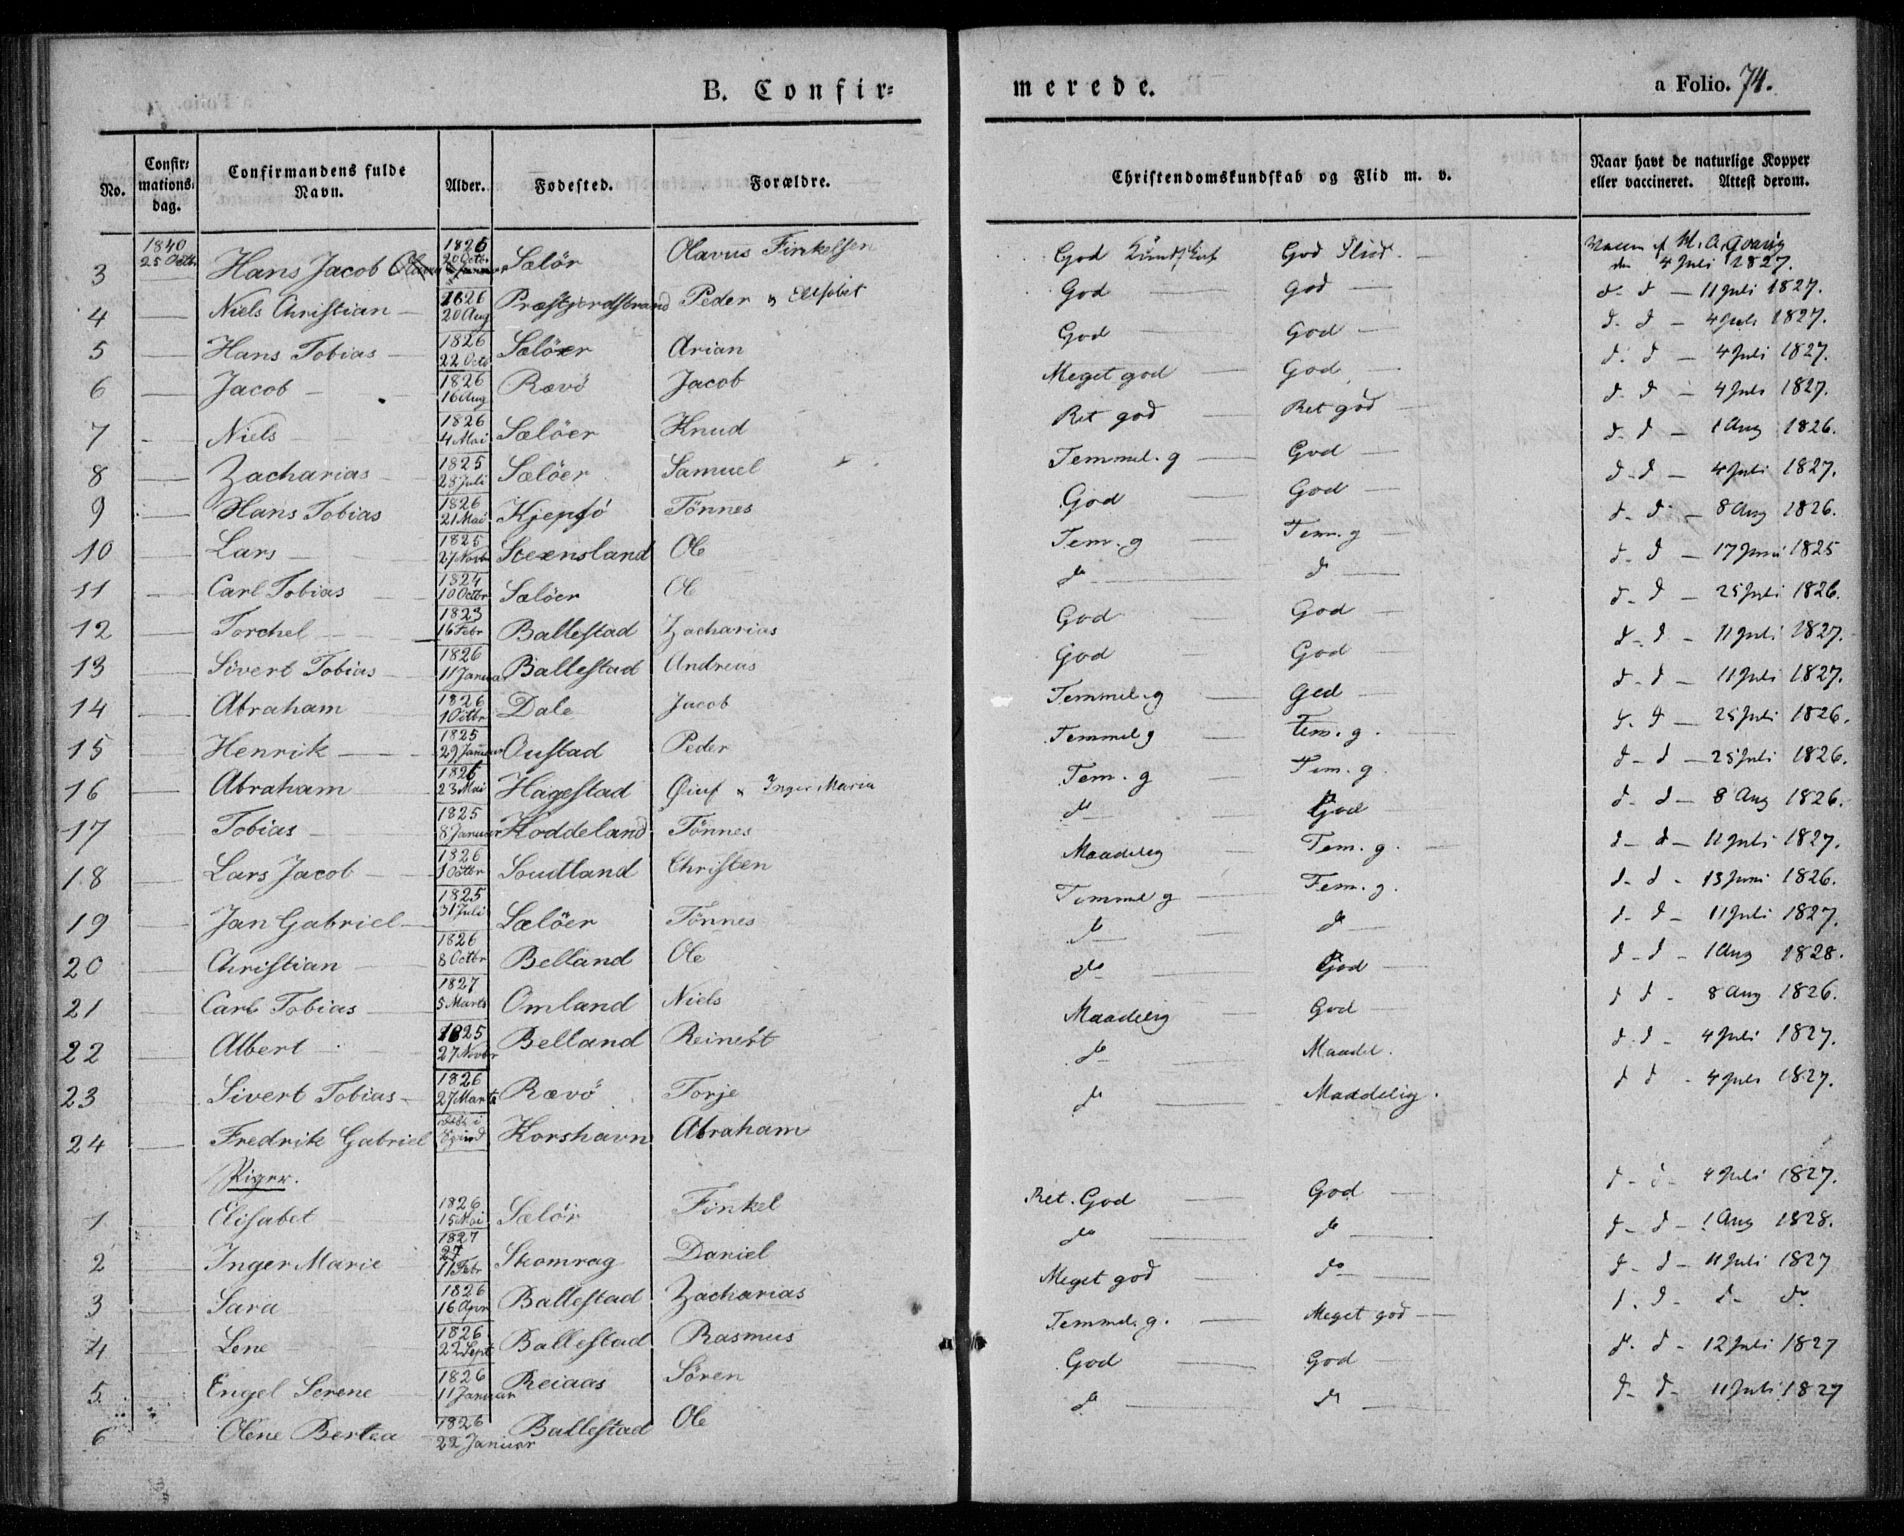 B. Confir=
merede.
a Folio. 74.
No. | Confir=mations=dag. | Confirmandens fulde Navn. | Alder. | Fødested. | Forældre. | Christendomskundskab og Flid m. v. | Naar havt de naturlige Kopper eller vaccineret. Attest derom.
3 | 1840 25 Octb. | Hans Jacob | 1826 20 Octbr | Sælör | Olavus Finkelsen | God Kundskab | God Flid. | den 4 Juli 1827.
4 | Niels Christian | 1826 20 Aug | Præstjordstrand | Peder & Elisabet | God | god | d. d. 11 Juli 1827.
5 | Hans Tobias | 1826 22 Octb | Sælöer | Arian | God | God | d. d. 4 Juli 1827.
6 | Jacob | 1826 16 Aug | Rævö | Jacob | Meget god | God | d. d. 4 Juli 1827.
7 | Niels | 1826 4 Mai | Sælöer | Knud | Ret god | Ret god | d. d. 4 Juli 1827.
8 | Zacharias | 1825 28 Juli | Sælöer | Samuel | Temmel. g | God | d. d. 1 Aug 1826.
9 | Hans Tobias | 1826 21 Mai | Kjepsö | Tönnes | God | God | d. d. 4 Juli 1827.
10 | Lars | 1825 27 Novbr | Steensland | Ole | Tem. g | Tem. g | d. d. 8 Aug 1826.
11 | Carl Tobias | 1824 10 Octbr | Sælöer | Ole | do | d | d. d. 17 Juni 1825
12 | Torchel | 1823 16 Febr | Ballestad | Zacharias | God | God | d. d. 25 Juli 1826.
13 | Sivert Tobias | 1826 11 Januar | Ballestad | Andreas | God | God | d. d. 11 Juli 1827.
14 | Abraham | 1826 1 Octbr | Dale | Jacob | Temmel. g | God | d. d. 11 Juli 1827.
15 | Henrik | 1825 29 Januar | Oustad | Peder | Temmel g | Tem. g. | d. d. 25 Juli 1826.
16 | Abraham | 1826 23 Mai | Hagestad | & Inger Maria | Tem. g | Tem. g. | d. d. 25 Juli 1826.
17 | Tobias | 1825 8 Januar | Koddeland | Tönnes | do | God | d. d. 8 Aug 1826.
18 | Lars Jacob | 1826 1 Octbr | Soudland | Christen | Maadelig | Tem. g. | d. d. 11 Juli 1827.
19 | Jan Gabriel | 1825 31 Juli | Sælöer | Tönnes | Temmel g | Tem. g. | d. d. 13 Juni 1826.
20 | Christian | 1826 8 Octbr | Belland | Ole | do | do | d. d. 11 Juli 1827.
21 | Carl Tobias | 1827 5 Marts | Omland | Niels | do | God | d. d. 1 Aug 1828.
22 | Albert | 1825 27 Novbr | Belland | Reinert | Maadelig | God | d. d. 8 Aug 1826.
23 | Sivert Tobias | 1826 27 Marts | Rævö | Torje | do | Maadel. | d. d. 4 Juli 1827.
24 | Fredrik Gabriel | Korshavn | Abraham | do | Maadelig. | d d 4 Juli 1827.
Piger.
1 | Elisabet | 1826 15 Mai | Sælör | Finkel | Ret. God | God | d. d. 4 Juli 1827.
2 | Inger Marie | 1827 27 11 Febr | Skomrag | Daniel | do | do | d. d. 1 Aug 1828.
3 | Sara | 1826 16 Apr | Ballestad | Zacharias | Meget god | do | d. d. 11 Juli 1827
4 | Lene | 1826 22 Sept | Ballestad | Rasmus | Temmel. g. | Meget god | d. d. d. do
5 | Engel Serene | 1826 11 Januar | Reiaas | Sören | God | God | d. d. 12 Juli 1827
6 | Olene Bertea | 1826 22 Januar | Ballestad | Ole | do | do | d. d. 11 Juli 1827